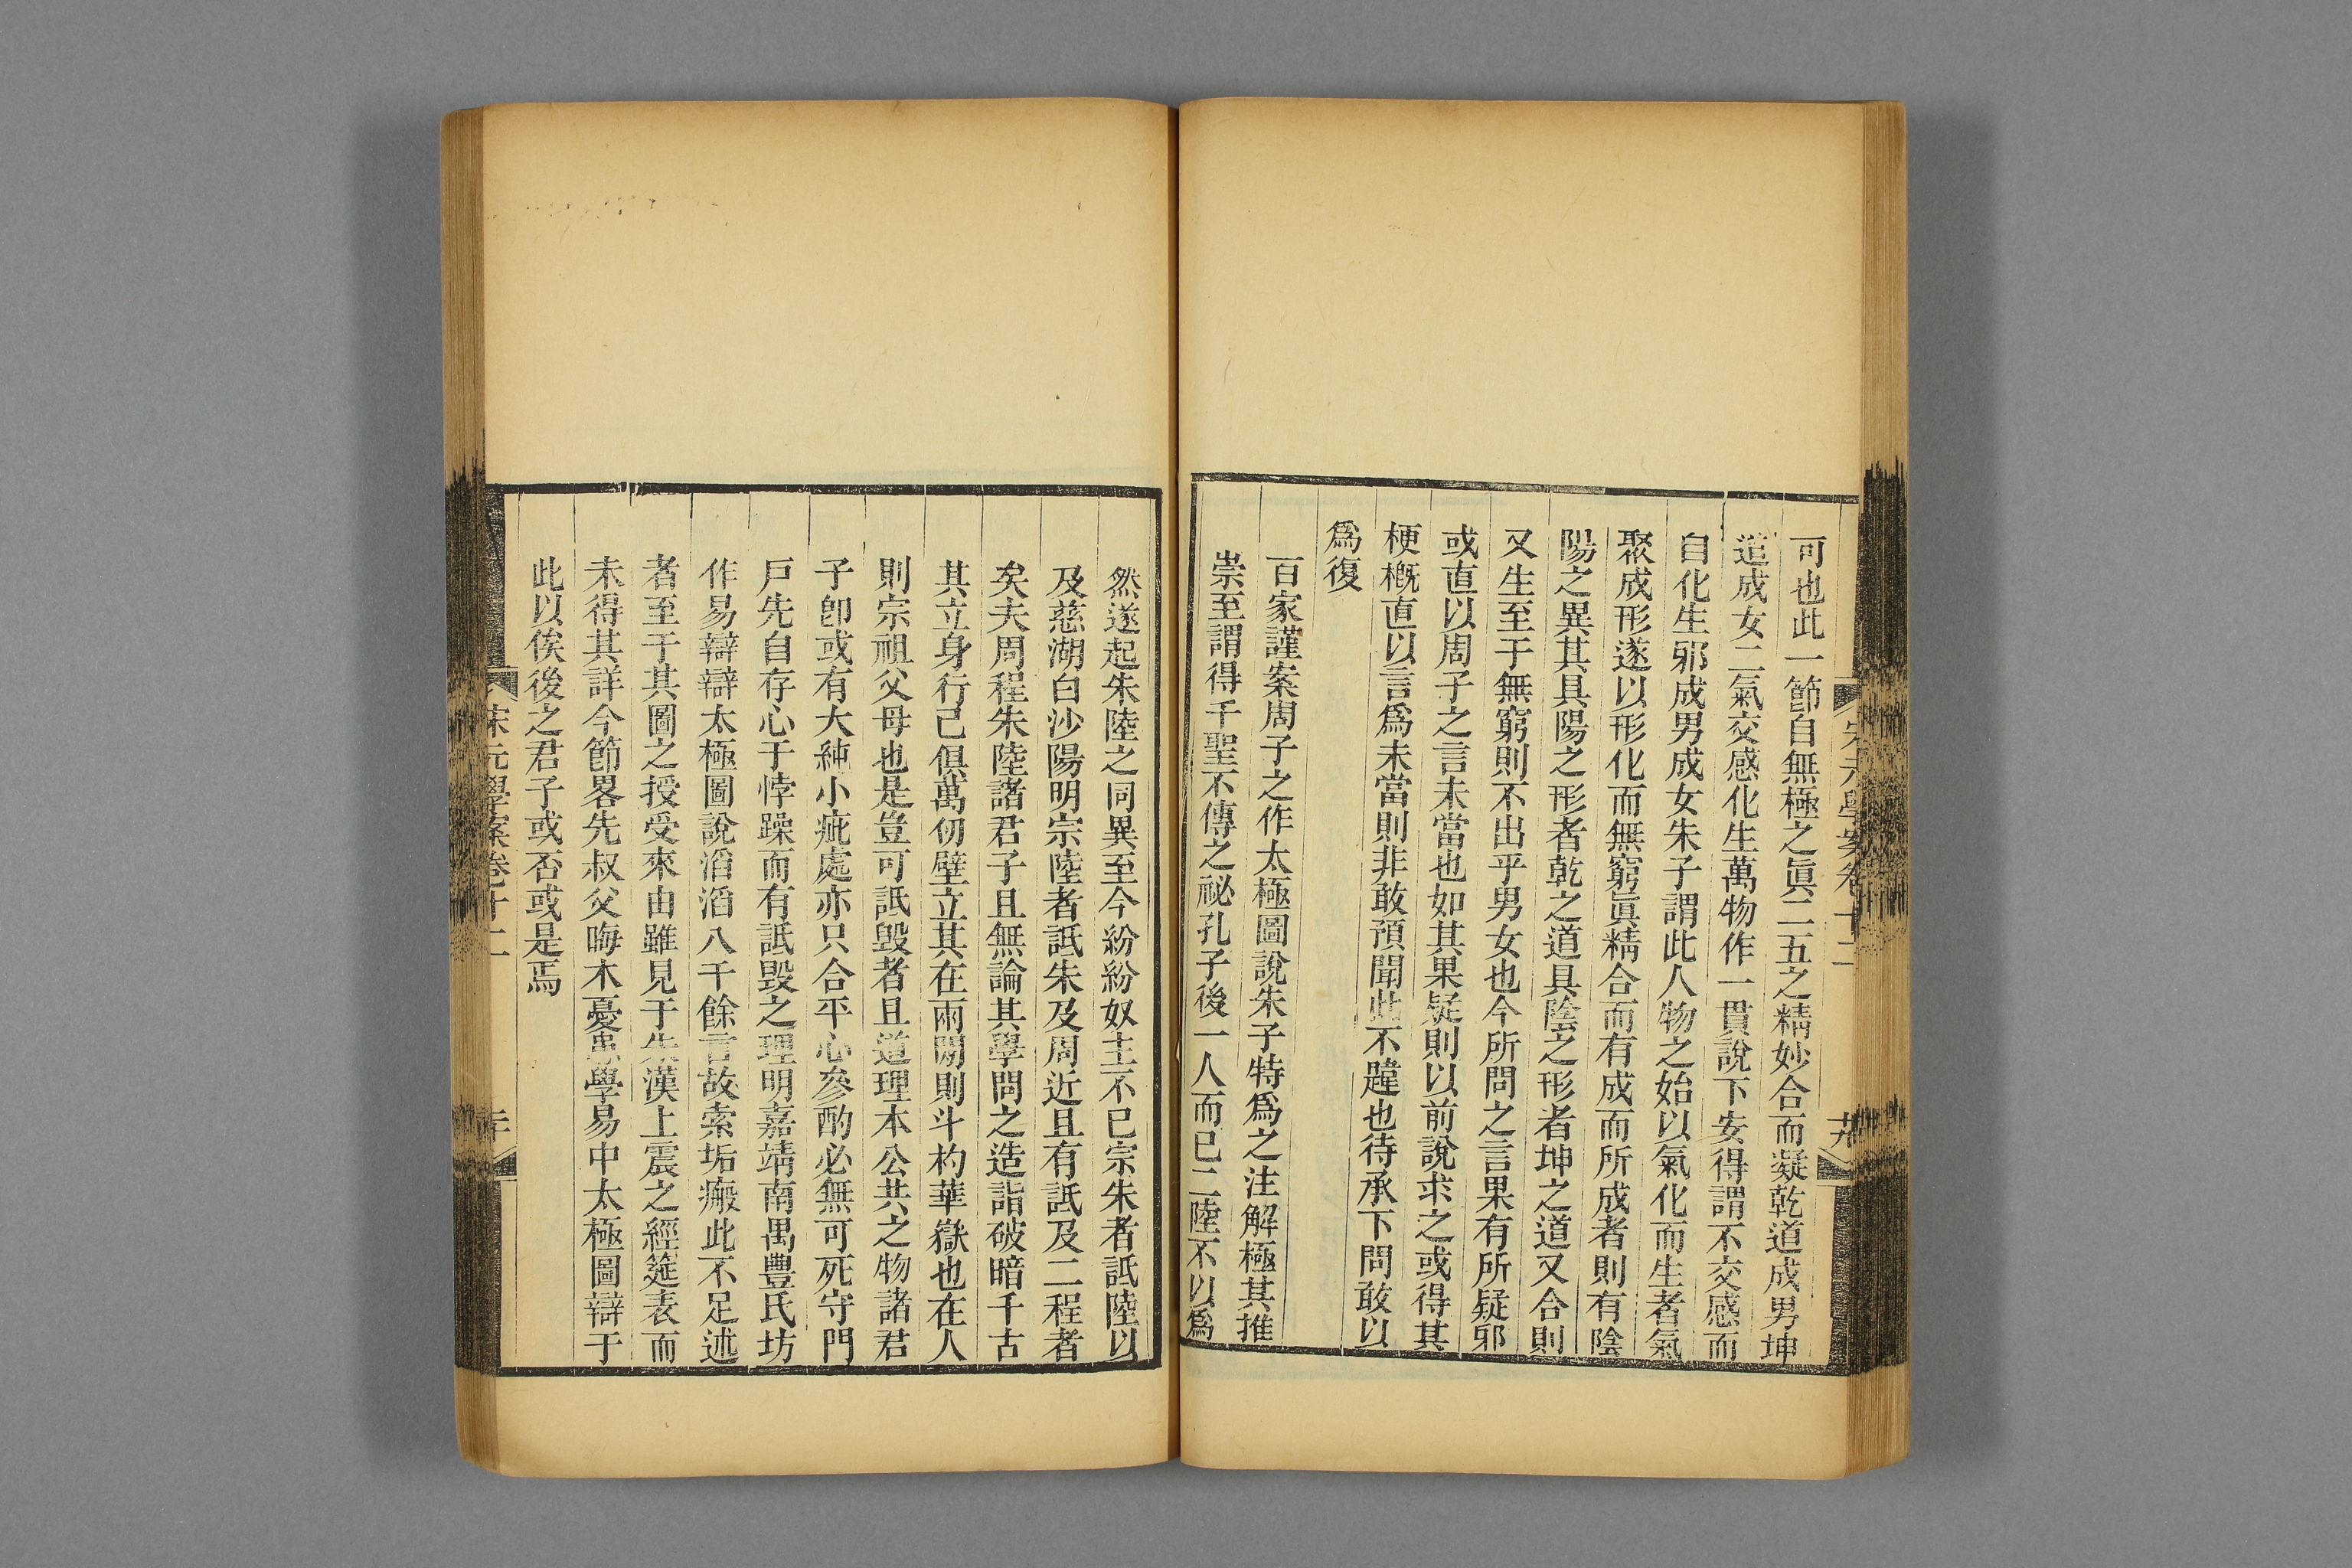 宋元學案卷十二
廿九
可也此一節自無極之眞二五之精妙合而凝乾道成男坤
道成女二氣交感化生萬物作一貫說下安得謂不交感而
自化生邪成男成女朱子謂此人物之始以氣化而生者氣
聚成形遂以形化而無窮眞精合而有成而所成者則有陰
陽之異其具陽之形者乾之道具陰之形者坤之道又合則
又生至于無窮則不出乎男女也今所問之言果有所疑邪
或直以周子之言未當也如其果疑則以前說求之或得其
梗槪直以言爲未當則非敢預聞此不韙也待承下問敢以
爲復
百家謹案周子之作太極圖說朱子特爲之注解極其推
崇至謂得千聖不傳之祕孔子後一人而已二陸不以爲
然遂起朱陸之同異至今紛紛奴主不已宗朱者詆陸以
及慈湖白沙陽明宗陸者詆朱及周近且有詆及二程者
矣夫周程朱陸諸君子且無論其學問之造詣破暗千古
其立身行己俱萬仞壁立其在兩閒則斗杓華嶽也在人
則宗祖父母也是豈可詆毀者且道理本公共之物諸君
子卽或有大純小疵處亦只合平心參酌必無可死守門
戶先自存心于悖躁而有詆毀之理明嘉靖南禺豐氏坊
作易辯辯太極圖說滔滔八千餘言故索垢瘢此不足述
者至于其圖之授受來由雖見于朱漢上震之經筵表而
未得其詳今節畧先叔父晦木憂患學易中太極圖辯于
此以俟後之君子或否或是焉
宋元學案卷十二
三十